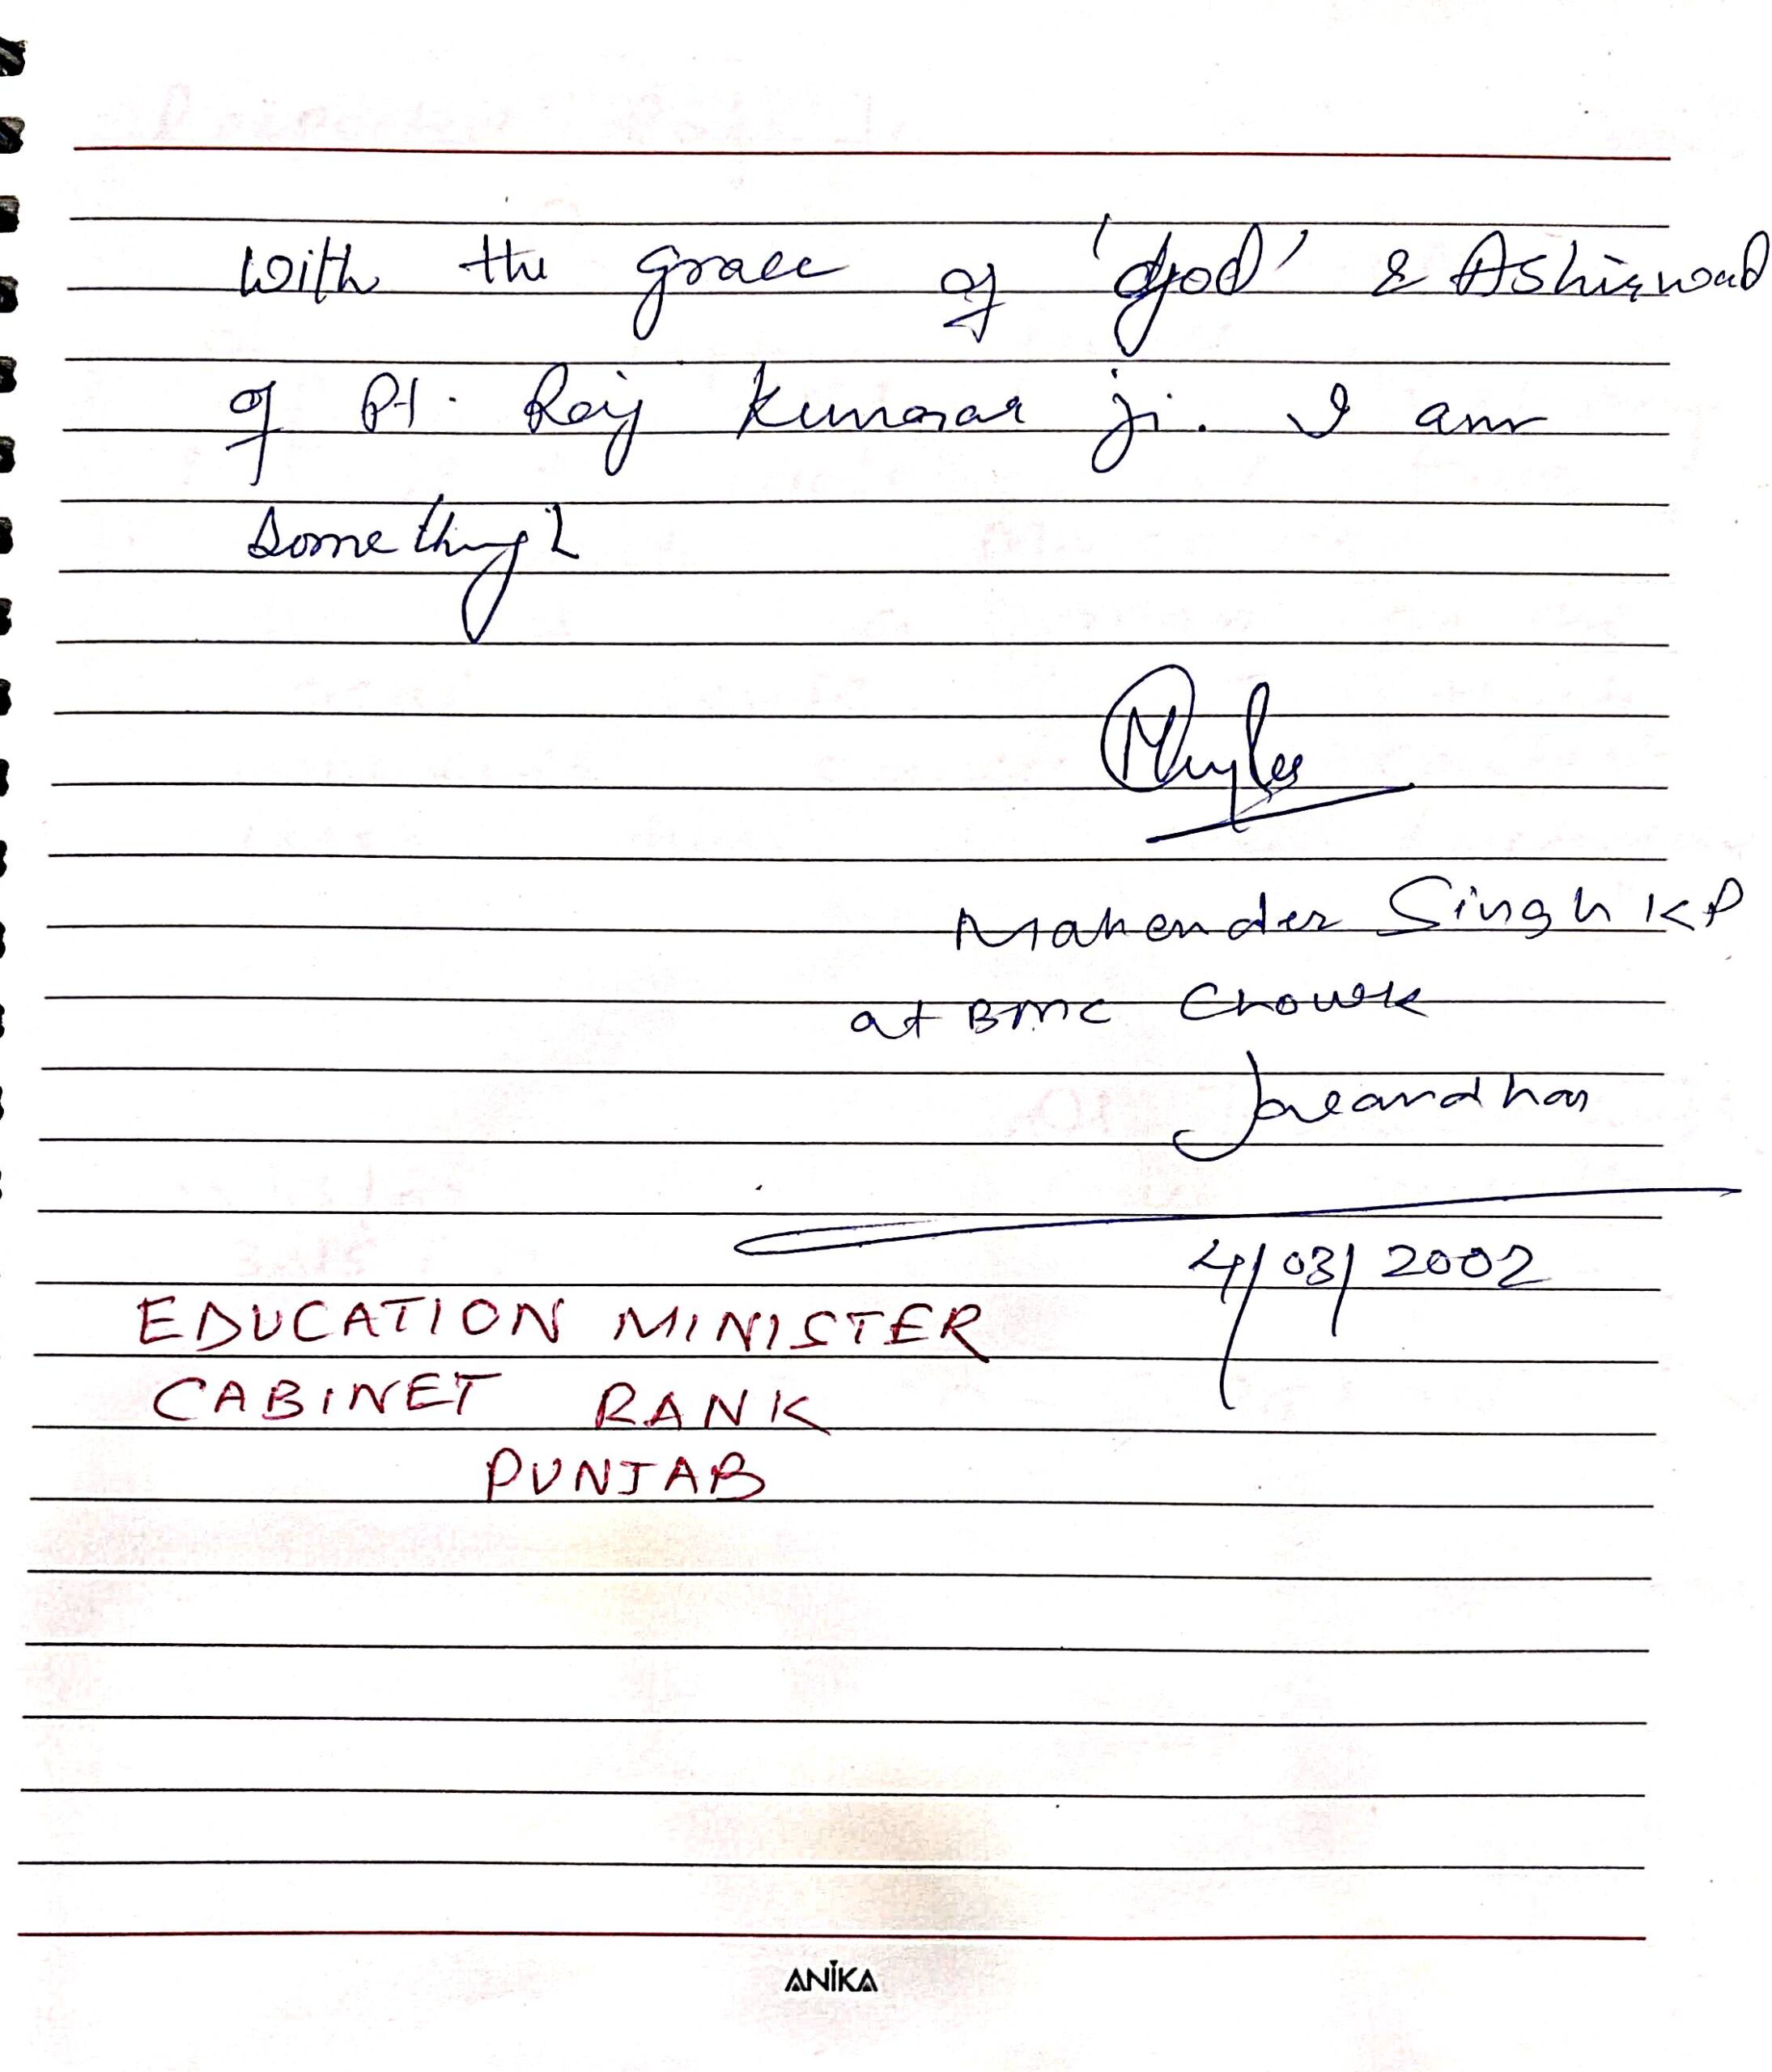 With the grace of 'God' & Ashirwad
of Pt. Raj Kumar ji. I am
something!
Mahender Singh KP
at BMC Chowk
Jalandhar
4/03/2002
EDUCATION MINISTER
CABINET RANK
PUNJAB
ANIKA